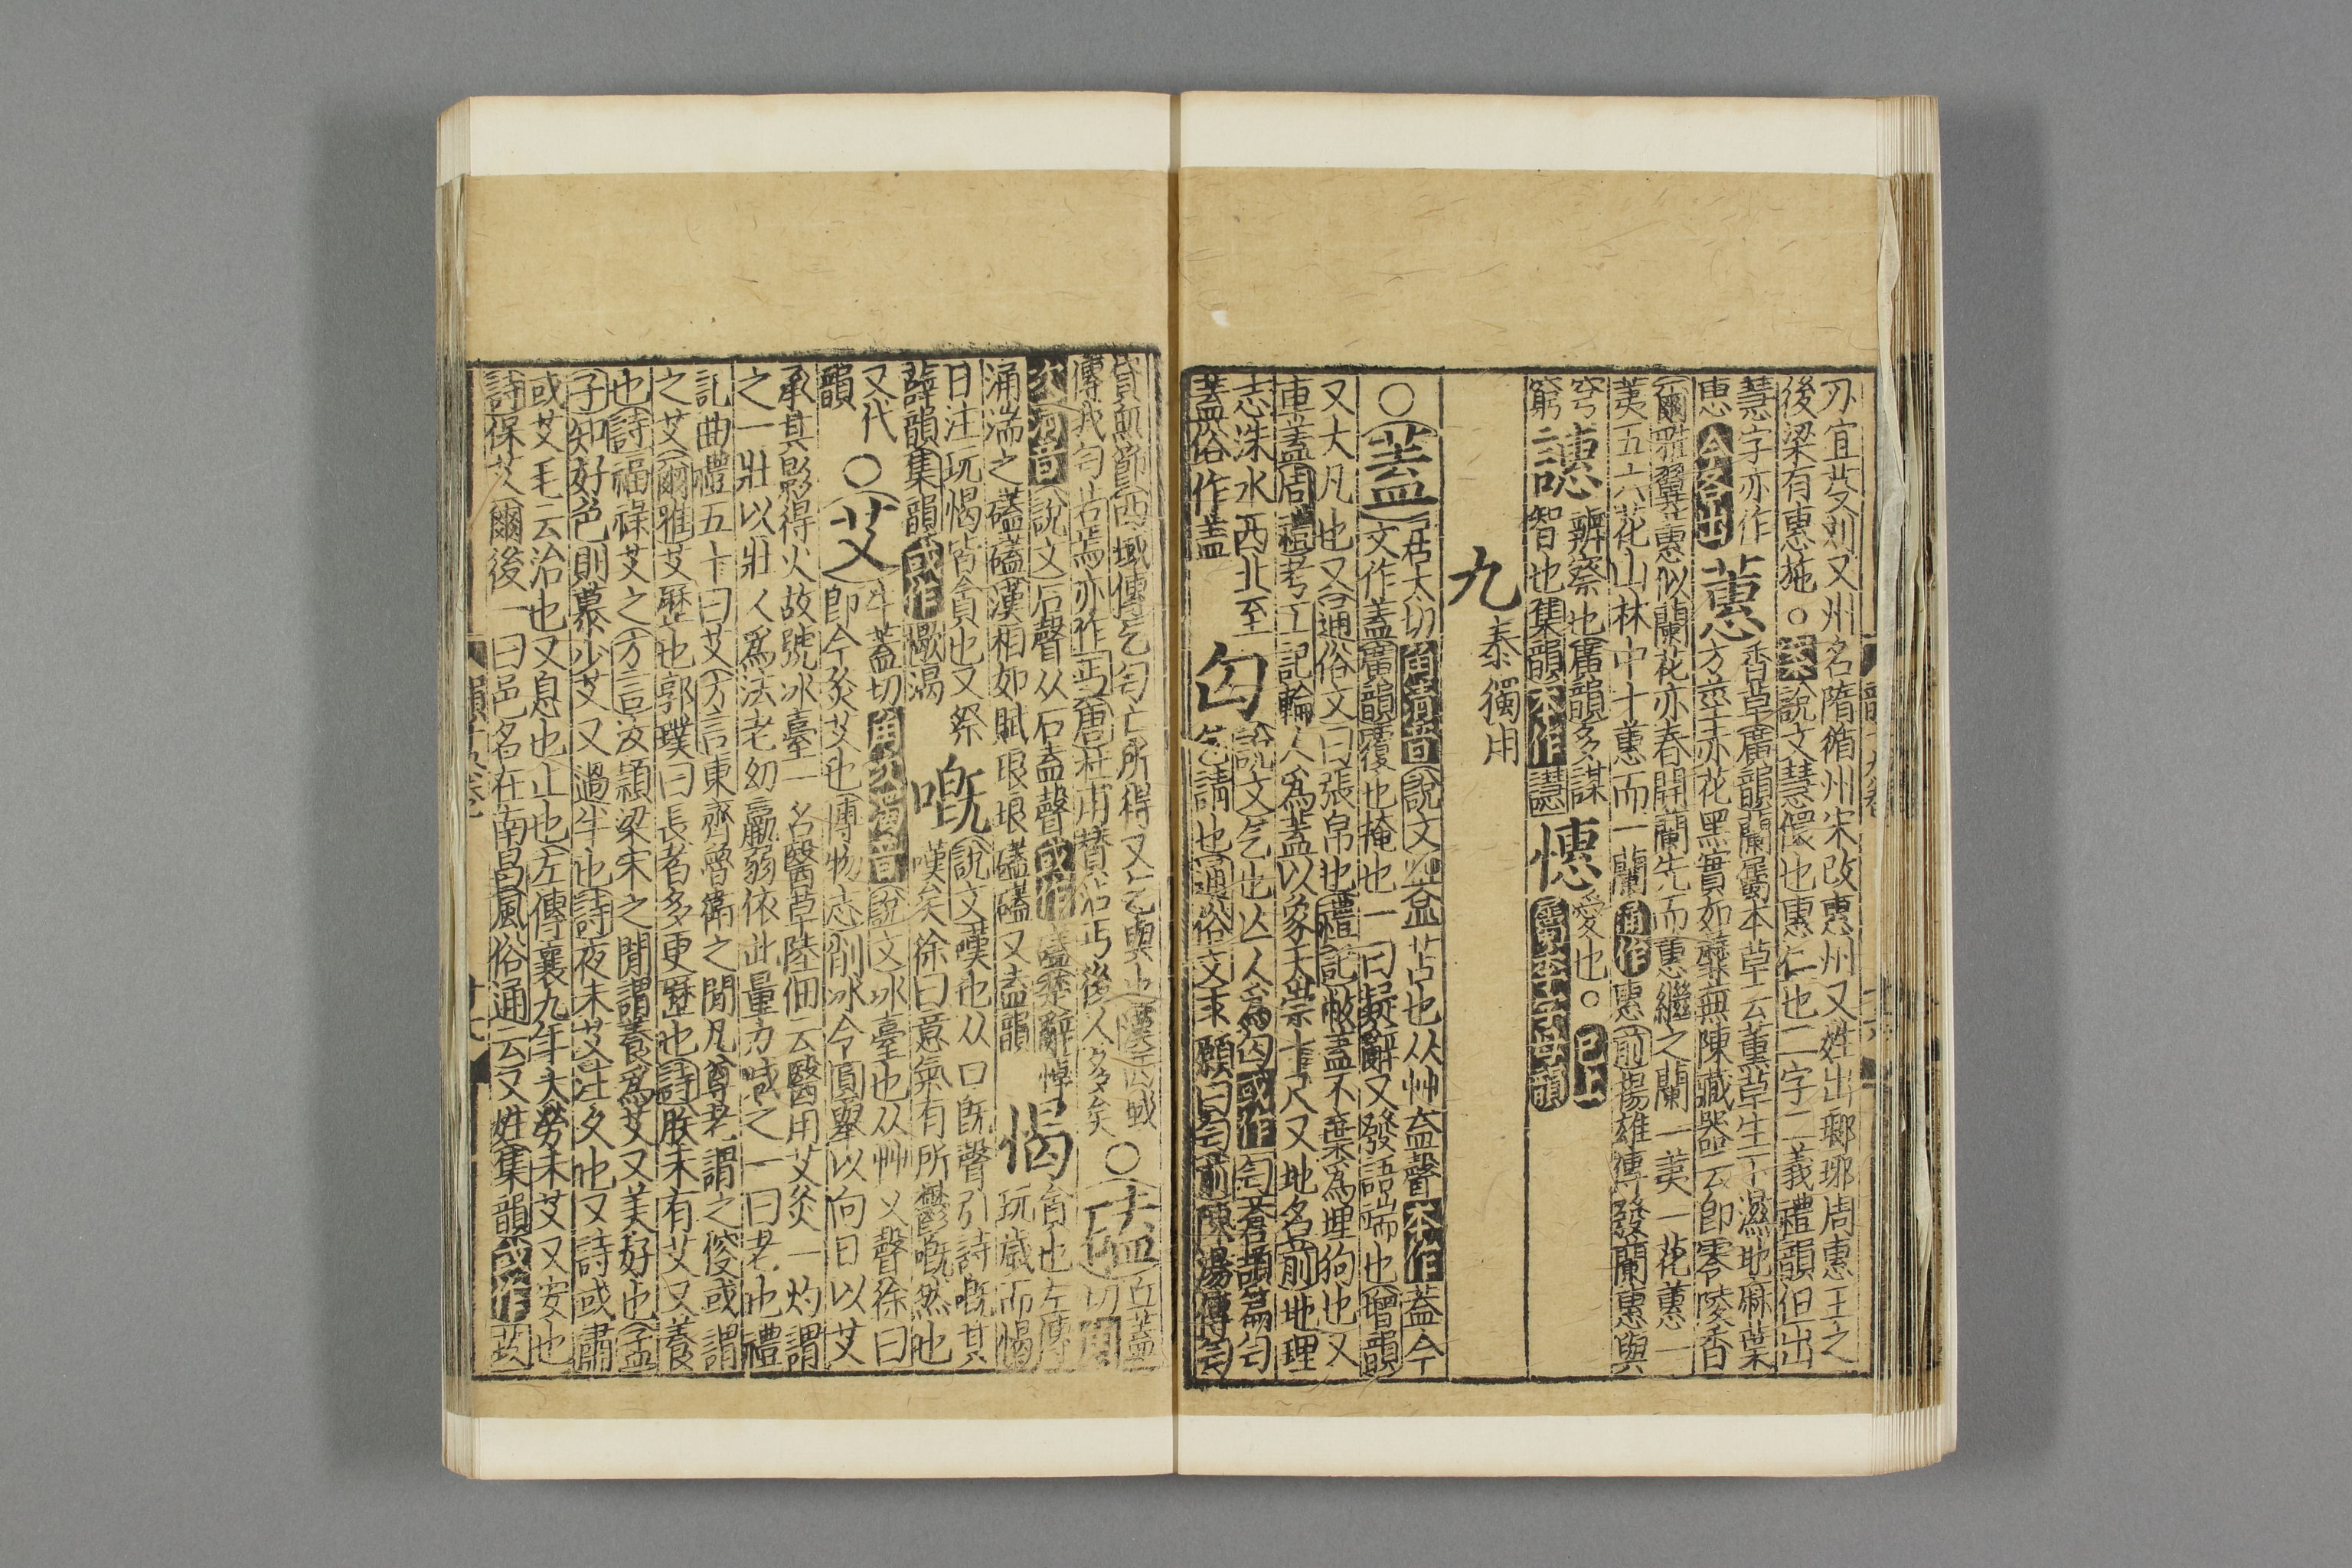 刃宜芟刈又州名隋循州宋改惠州又姓出瑯琊周惠王之
後梁有惠施○說文慧儇也惠仁也二字二義禮韻但出
慧字亦作
惠今各出
蕙
香草廣韻蘭屬本草云薰草生下濕地麻葉
方莖赤花黑實如蘼蕪陳藏器云即零陵香
爾雅翼蕙似蘭花亦春開蘭先而蕙繼之蘭一荑一花蕙一
荑五六花山林中十蕙而一蘭通作惠前揚雄傳發蘭惠與
穹
窮
譓
辨察也廣韻多謀
智也集韻本作譿
憓
愛也○已上
屬莖字母韻
九
泰獨用
○
蓋
居太切角清音說文苫也从艸盍聲本作葢今
文作蓋廣韻覆也掩也一曰疑辭又發語端也增韻
又大凡也又通俗文曰張帛也禮記敝蓋不棄爲埋狗也又
車蓋周禮考工記輪人爲蓋以象天崇十尺又地名前地理
志洙水西北至
蓋俗作盖
匃
說文乞也亾人爲匃或作匄蒼頡篇匄
乞請也通俗文求願曰匄前陳湯傳匄
貸無節西域傳乞匄亡所得又乞與也漢西域
傳我匄若馬亦作丐唐杜甫贊沾丐後人多矣
○
磕
丘蓋
切角
次清音說文石聲从石盍聲或作
涌湍之磕磕漢相如賦琅琅磕磕又盍韻
愒
貪也左傳
玩歲而愒
日注玩愒皆貪也又祭
薛韻集韻或作愒渴
嘅
說文嘆也从口既聲引詩嘅其
嘆矣徐曰意氣有所鬱嘅然也
又代
韻
○
艾
牛蓋切角次濁音說文冰臺也从艸乂聲徐曰
即今灸艾也博物志削冰令圓舉以向日以艾
承其影得火故號冰臺一名醫草陸佃云醫用艾灸一灼謂
之一壯以壯人爲法老幼羸弱依此量力減之一曰老也禮
記曲禮五十曰艾方言東齊魯衛之閒凡尊老謂之傁或謂
之艾爾雅艾歷也郭璞曰長者多更歷也詩朕未有艾又養
也詩福祿艾之方言汝潁梁宋之閒謂養爲艾又美好也孟
子知好色則慕少艾又過半也詩夜未艾注久也又詩或肅
或艾毛云治也又息也止也左傳襄九年大勞未艾又安也
詩保艾爾後一曰邑名在南昌風俗通云又姓集韻或作